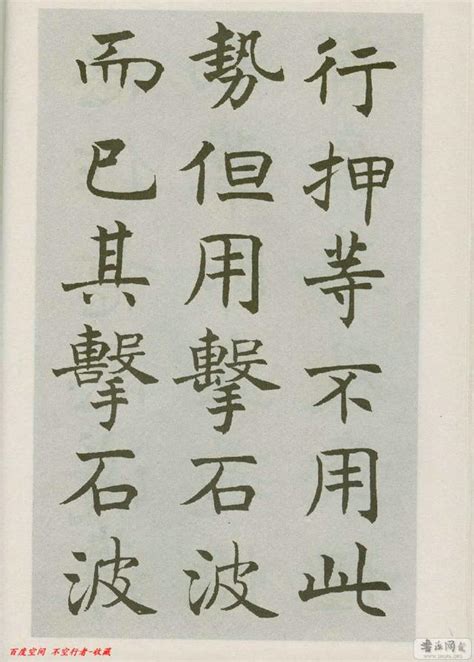 行押等不用此
勢但用擊石波
而已其擊石波
百度空间 不空行者-收藏